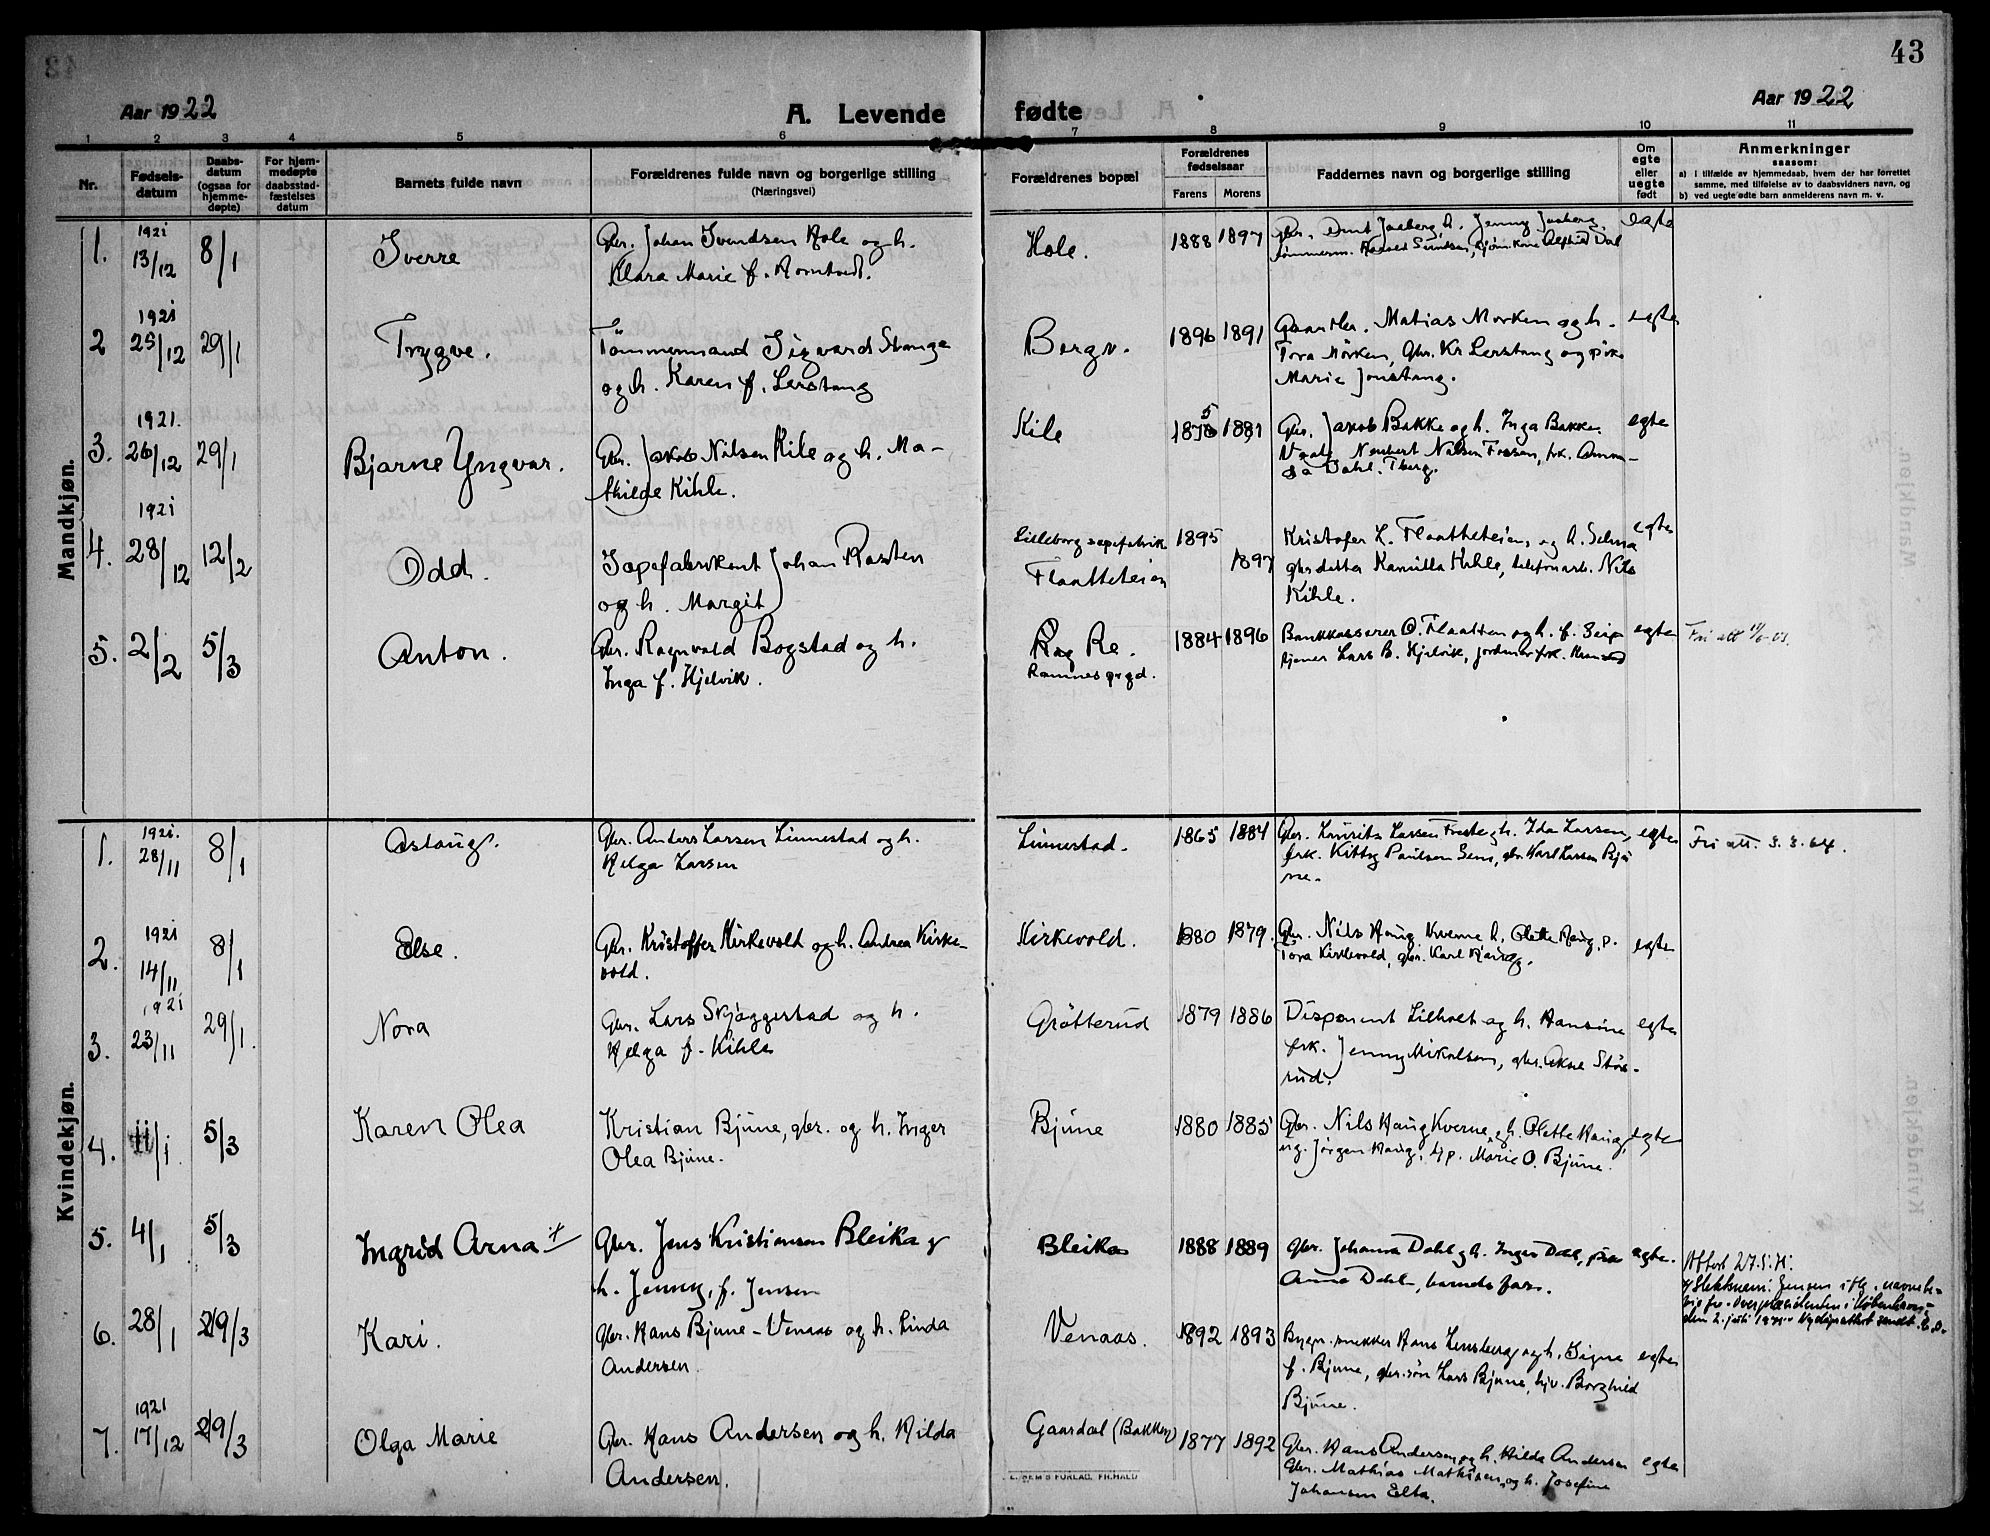 43
Aar 1922
A. Levende fødte
Aar 1922
1 2 3 4 5 6 7 8 9 10 11
Nr.
Fødsels-
datum
Daabs-
datum
(ogsaa for
hjemme-
døpte)
For hjem-
medøpte
daabsstad-
fæstelses
datum
Barnets fulde navn
Forældrenes fulde navn og borgerlige stilling
(Næringsvei)
Forældrenes bopæl
Forældrenes
fødselsaar
Farens Morens
Faddernes navn og borgerlige stilling
Om
egte
eller
uegte
født
Anmerkninger
saasom:
a) i tilfælde av hjemmedaab, hvem der har forrettet
samme, med tilføielse av to daabsvidners navn, og
b) ved uegte fødte barn anmelderens navn m. v.
Mandkjøn.
1. 1921 13/12 8/1 Sverre
Gbr. Johan Svendsen Hole og h.
Klara Marie f.
Hole. 1888 1897
Gbr. Jenny egte
2 1921 25/12 29/1 Trygve.
Tømmermand Sigvard Stange
og h. Karen f. Lerstang
Bergv. 1896 1891
Matias Morken og h.
Tora Morken, Gbr. Kr Lerstang og pike
Marie Jonstang.
egte
3. 1921. 26/12 29/1 Bjarne Yngvar.
Gbr. Jakob Nilsen Kile og h. Ma-
thilde Kihle.
Kile 1875 1881
Gbr. Jakob Bakke og h. Inga Bakke.
Norbert Nilsen Fossen, frk.
Dahl. Tberg.
egte
4. 1921 28/12 12/2 Odd.
Sæpefabrikant Johan Rasten
og h. Margit
Lilleborg sæpefabrik
Flaatteteien
1895 1897
Kristofer L. Flaatteteien og h. Selma
gbr datter Kamilla Kihle, telefonarb. Nils
Kihle.
egte
5. 2/2 5/3 Anton.
Gbr. Ragnvald Bogstad og h.
Inga f. Hjelvik.
Re.
Ramnes prgd.
1884 1896
Bankkasserer O. Flaatten og h. f. Seip
Lars B. Hjelvik, jordmor frk.
egte
Fri att
Kvindekjøn.
1. 1921. 28/11 8/1 Aslaug.
Gbr. Anders Larsen Linnestad og h.
Helga Larsen
Linnestad. 1865 1884
Gbr. Laurits Larsen h. Ida Larsen,
frk. Kitty Paulsen Sem, gbr. Karl Larsen Bju
ne.
egte
Fri att. 3.3.64.
2. 1921 14/11 8/1 Else.
Gbr. Kristoffer Kirkevold og h. Andrea Kirke-
vold.
Kirkevold. 1880 1879.
Gbr. Nils Haug Kverne h. Olette Haug, p.
Tora Kirkevold, gbr. Karl Haug.
egte
3. 1921 23/11 29/1. Nora
Gbr. Lars Skjæggestad og h.
Helga f. Kihle
Grøtterud 1879 1886
Disponent Lilholt og h. Hansine
frk. Jenny Mikalsen, gbr. Støs-
rud.
egte
4. 11/1 5/3 Karen Olea
Kristian Bjune, gbr. og h. Inger
Olea Bjune.
Bjune 1880 1885
Gbr. Nils Haug Kverne, og h. Olette Haug,
ug. Jørgen Haug, p. Marie O. Bjune.
egte
5. 4/1 5/3 Ingrid Arna x/
Gbr. Jens Kristiansen Bleika og
h. Jenny, f. Jensen
Bleika 1888 1889
Gbr. Johan Dahl og h. Inger Dahl, pike
Anna Dahl, barnets far.
egte.
Attest 27.5.71.
x/ Slektsnavn: Jensen navne-
Overpræsidenten i København
den 2. juli sendt.
6. 28/1 29/3 Kari.
Gbr. Hans Bjune - Venaas og h. Linda
Andersen.
Venaas. 1892 1893
Bygn. snekker Hans og h. Signe
f. Bjune, gbr.søn Lars Bjune, hjv. Borghild
Bjune.
egte
7. 1921 17/12 29/3 Olga Marie
Gbr. Hans Andersen og h. Hilda
Andersen.
Gaardal (Bakken) 1877 1892
Gbr. Hans Andersen og h. Hilda Andersen
Gbr. Mathias Mathisen, og h. Josefine
Johansen Elta.
egte
FORLAG, FR.HALD